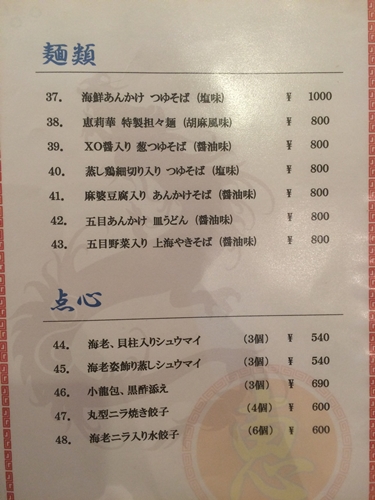 麺類
37. 海鮮あんかけ つゆそば（塩味） ¥ 1000
38. 恵莉華 特製担々麺（胡麻風味） ¥ 800
39. XO醤入り 葱つゆそば（醤油味） ¥ 800
40. 蒸し鶏細切り入り つゆそば（塩味） ¥ 800
41. 麻婆豆腐入り あんかけそば（醤油味） ¥ 800
42. 五目あんかけ 皿うどん（醤油味） ¥ 800
43. 五目野菜入り 上海やきそば（醤油味） ¥ 800
点心
44. 海老、貝柱入りシュウマイ （3個） ¥ 540
45. 海老姿飾り蒸しシュウマイ （3個） ¥ 540
46. 小龍包、黒酢添え （3個） ¥ 690
47. 丸型ニラ焼き餃子 （4個） ¥ 600
48. 海老ニラ入り水餃子 （6個） ¥ 600